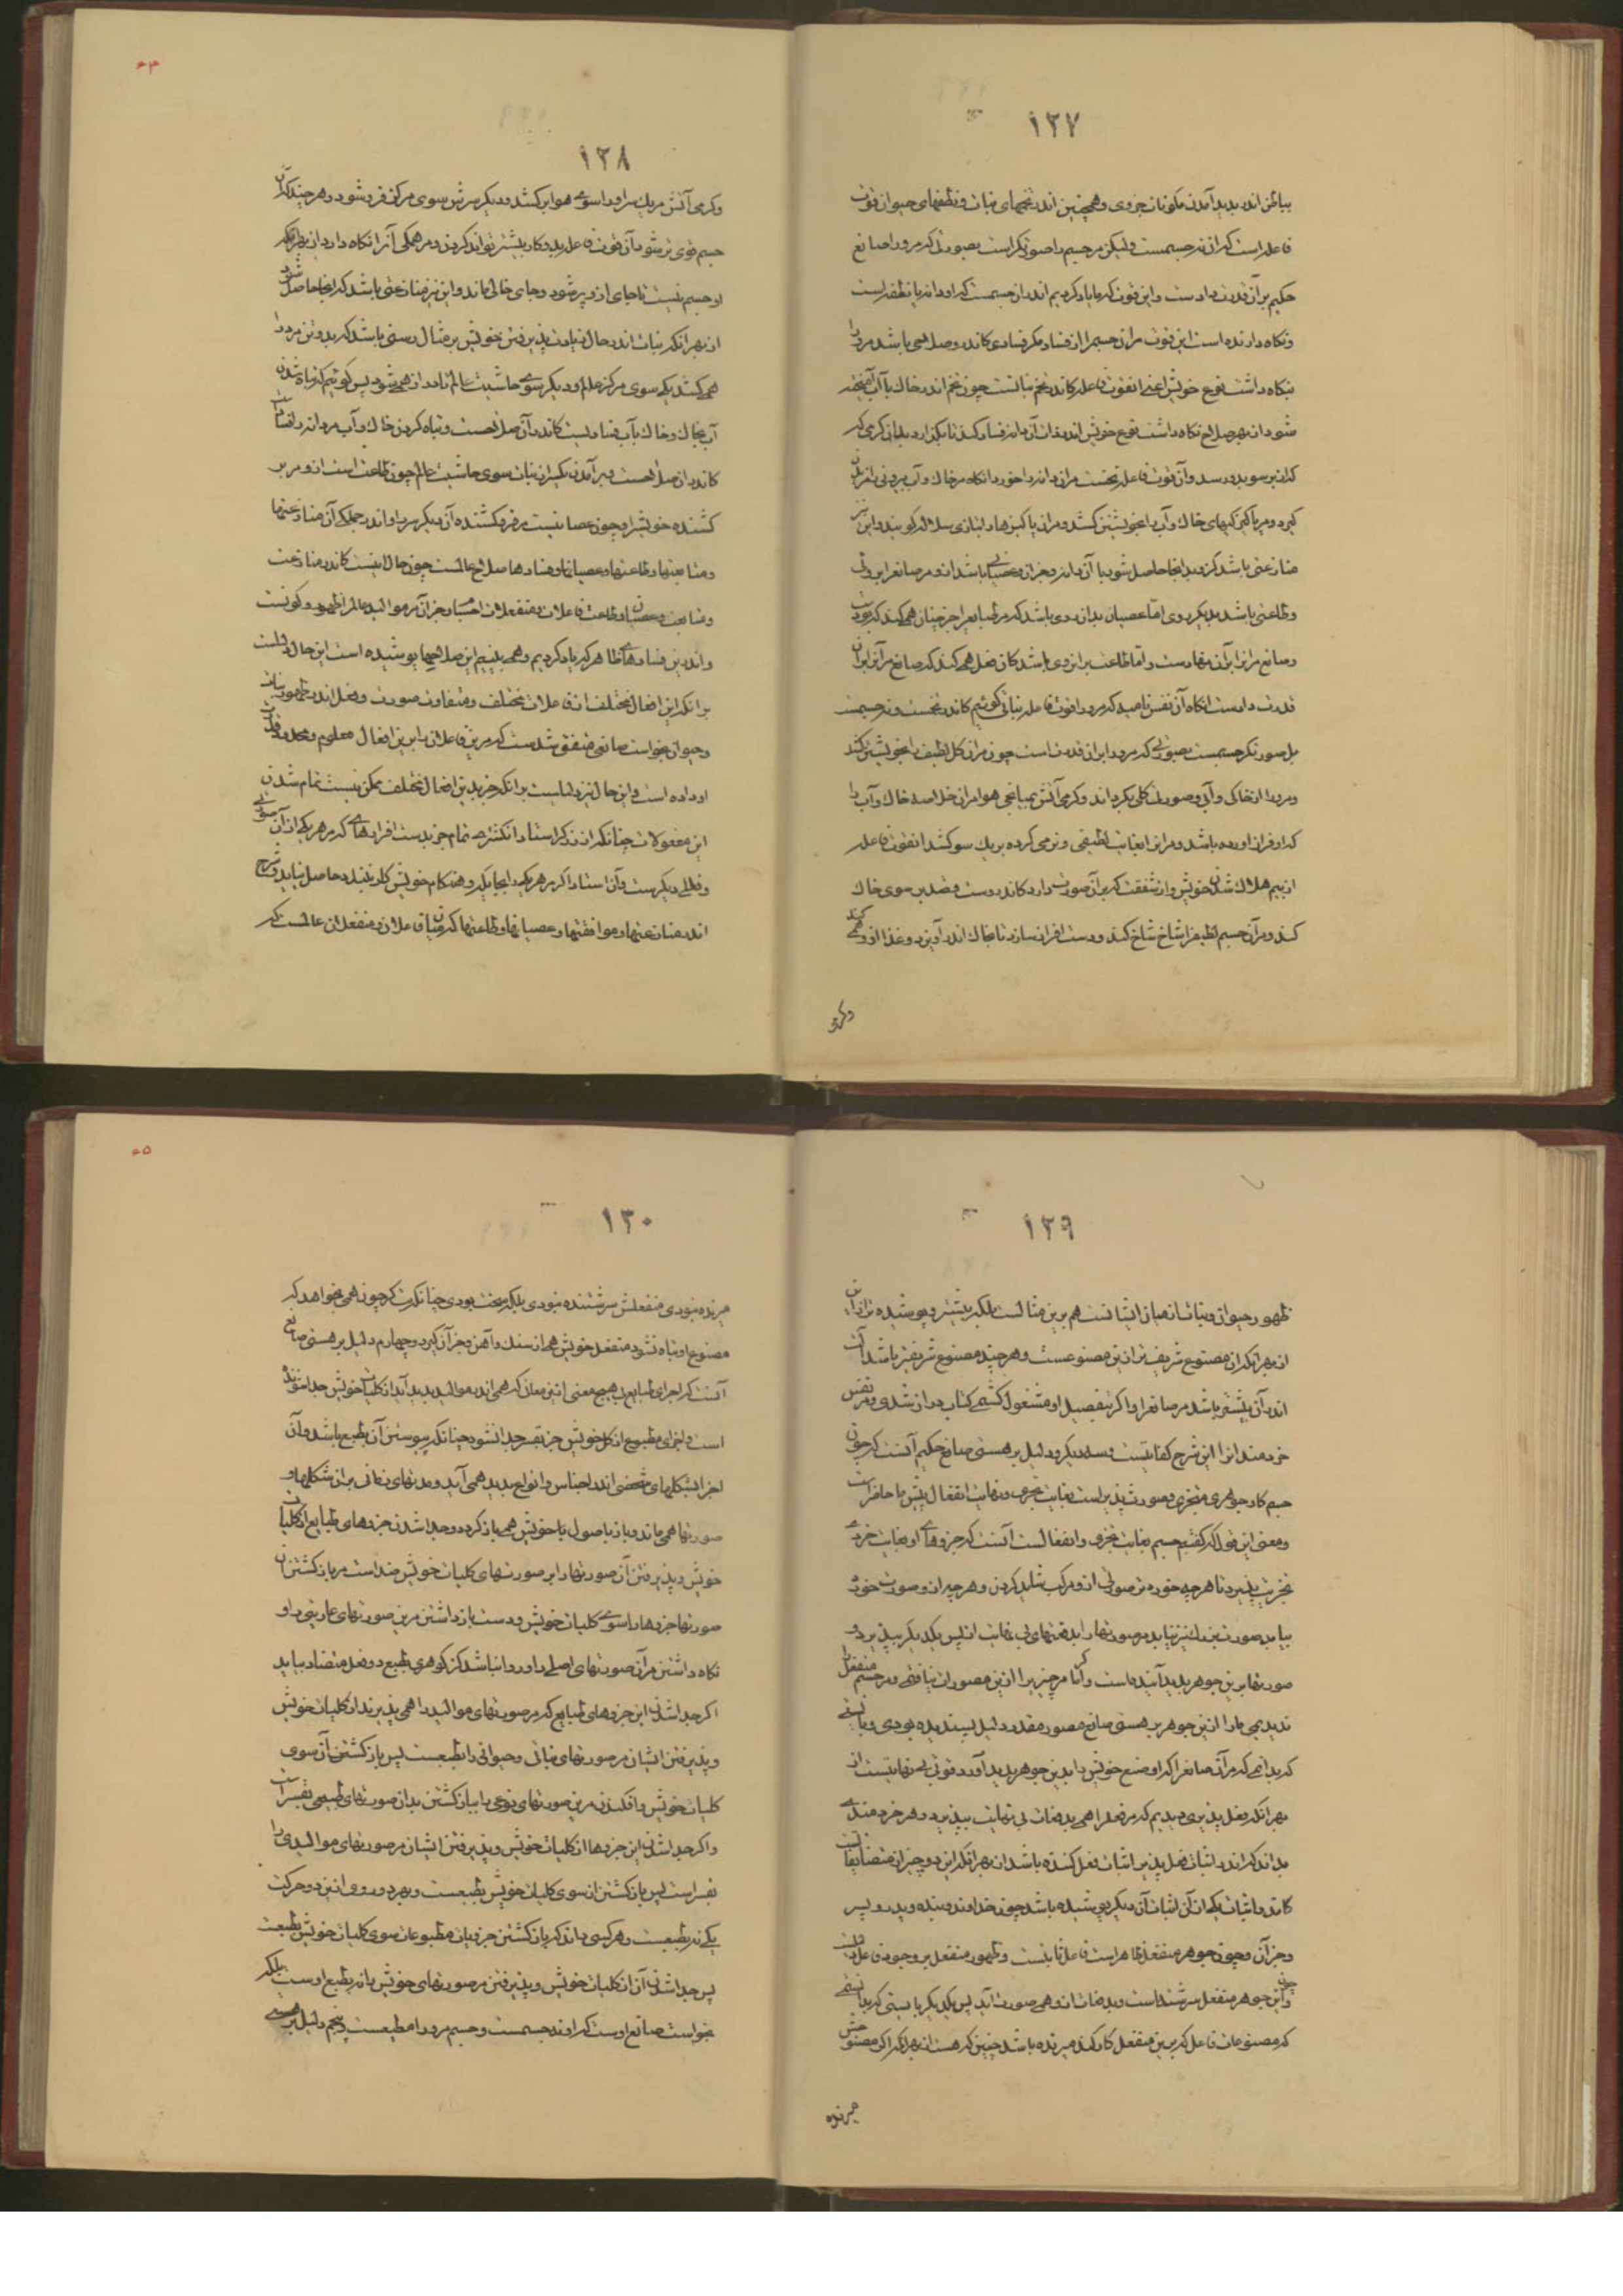 ۱۲۷
بباطن اندر پدید آمدن مکونات جزوی و همچنین اندر تخمهای نبات و نطفهای حیوان قوت
فاعله است که آن نه جسمست ولیکن مر جسم را صورتگر است بصورتی که مر او را صانع
حکیم بر آن قدرت دادست و این قوت که ما یاد کردیم اندر آن جسمست که او دانه یا نطفه است
و نگاه دارنده است این قوت مر آن جسم را از فساد مگر فسادی کاندر و صلاحی باشد مر او را
بنگاه داشت نوع خویش اعنی آن قوت فاعله کاندر تخم نباتست چون تخم اندر خاک با آب آمیخته
شود از بهر صلاح نگاه داشت نوع خویش اندر ذات آن دانه فساد کند تا بگذارد بدان گرمی که
از بر سو بدو رسد و آن قوت فاعله نخست مر آن دانه را خورد آنگاه مر خاک و آب بیرونی را
گیرد و مر پاکیزگیهای خاک و آب را بخویشتن کشد و مر آن پاکیزها را بتازی سلاله گویند و این نیز
منازعتی باشد کز و بدانجا حاصل شود با آن دانه و جز آن و عصیانی باشد از و مر صانع را بروئی
و طاعتی باشد بدیگر روی اما عصیان بدان روی باشد که مر طبایع را جز چنان همی کند که بودست
و صانع مر آنرا بر آن نهادست و اما طاعت بر آن روی باشد کان فعل همی کند که صانع مر آنرا بر آن
قدرت دادست آنگاه آن نفس نامیه که مر او را قوت فاعله نباتی گوئیم کاندر تخمست و نه جسمست
بل صورتگر جسمست بصورتی که مر او را بر آن قدرت است چون مر آن گل لطیف را بخویشتن کشد
و مر او را از خاکی و آبی و صورت گلی بگرداند و گرمی آتش بمیانجی هوا مر آن خلاصه خاک و آب را
که او فراز آورده باشد و مر آن را بغایت لطیفی و نرمی کرده بر یک سو کشد آن قوت فاعله
از بیم هلاک شدن خویش و از شفقت که بر آن صورت دارد کاندروست و فعل بر سوی خاک
کند و مر آن جسم لطیف را شاخ شاخ کند و دست افزار سازد تا بخاک اندر آویزد و غذا از و همی کشد
و گرمی
۶۴
۱۲۸
و گرمی آتش مر یک سر او را سوی هوا بر کشد و دیگر سرش سوی مرکز فرو شود و هر چند که آن
جسم قوی تر شود آن قوت فاعله بدو کار بیشتر تواند کردن و مر همگی آنرا نگاه دارد از بهر آنکه
او جسم نیست تا جای ازو پر شود و جای خالی ماند و این نیز منازعتی باشد که آنجا حاصل شود
از بهر آنکه نبات اندر حال زیادت پذیرفتن خویش بر مثال رسنی باشد که بدو تن مر او را
همی کشد یکی سوی مرکز عالم و دیگر سوی حاشیت عالم تا دراز همی شود پس گوئیم کز تباه شدن
آب بخاک و خاک بآب فسادیست کاندر و آن صلاحست و تباه کردن خاک و آب مر دانه را فسادیست
کاندر آن صلاحست و بر آمدن یکسر آن نبات سوی حاشیت عالم چون طاعت است از و مر بر
کشنده خویش را و چون عصیانیست مر فرو کشنده آن دیگر سر را و اندر جملگی آن منازعتها
و متابعتها و طاعتها و عصیانها و فسادها صلاح عالمست چون حال اینست کاندر منازعت
و متابعت و عصیان و طاعت فاعلان و منفعلان اجسام و جز آن مر موالید عالم را ظهور و کونست
و اندرین فسادهای ظاهر که یاد کردیم و همی بینیم این صلاحها پوشیده است این حال دلیلست
بر آنکه این افعال مختلف از فاعلان مختلف و متفاوت صورت و فعل اندر ظهور نبات
و حیوان بخواست صانعی متفق شدست که مر این فاعلان را برین افعال معلوم و محدود قدرت
او داده است و این حال نیز دلیلست بر آنکه جز بدین افعال مختلف ممکن نیست تمام شدن
این مفعولات چنانکه از زرگر استاد انگشتری تمام جز بدست افزارهای که مر هر یکی از آن صورتی
و فعلی دیگرست و آن استاد اگر مر هر یکی را بجایگه و هنگام خویش کار نبندد حاصل نیاید و شرح
اندر منازعتها و موافقتها و عصیانها و طاعتها که میان فاعلان و منفعلان عالمست که
۱۲۹
ظهور حیوان و نبات از میان ایشانست هم برین مثالست بلکه بیشتر و پوشیده تر از این
از بهر آنکه آن مصنوع شریف تر ازین مصنوعست و هر چند مصنوع شریفتر باشد آلت
اندر آن بیشتر باشد مر صانع او را و اگر بتفصیل او مشغول گشتمی کتاب دراز شدی و مر نفس
خردمند انرا این شرح کفایتست و سه دیگر دلیل بر هستی صانع حکیم آنست که چون
جسم کاو جوهری متجزی و صورت پذیر است بغایت تجزی و نهایت انفعال پیش ما حاضر است
و معنی این قول که گفتیم جسم بغایت تجزی و انفعالست آنست که جزوهای او بغایت خردی
تجزیت پذیرد تا هر چه خوردتر صورتی از و مرکب شاید کردن و هر چه از و صورت خورد
بباید صورت بزرگ نیز بباید مر صورتها را بدفعتهای بی نهایت از پس یکدیگر بپذیرد و
صورتها برین جوهر پدید آینده است و اگر ما مر چیزیرا ازین مصورات نیافتی و مر جسم منفعل را
ندیدیمی ما را ازین جوهر بر هستی صانع مصور مقدر دلیل پسندیده بودی و بایستی
که بدانیمی که مر آن صانع را که او صنع خویش را بدین جوهر پدید آورد قوتی بی نهایتست از
بهر آنکه فعل پذیری دیدیم که مر فعل را همی بدفعات بی نهایت بپذیرد و هر خردمندی
بداند که اندر اثبات فعل پذیر اثبات فعل کننده باشد از بهر آنکه این دو چیز از متضایفانست
کاندر اثبات یکی از آن اثبات آن دیگر پوشیده باشد چون خداوند و بنده و پدر و پسر
و جز آن و چون جوهر منفعل ظاهر است فاعل ثابتست و ظهور منفعل بر وجود فاعل دلیلست
و چون این جوهر منفعل سرشته است و بدفعات از و همی صورت آید پس یکدیگر بایستی که بدانستمی
که مصنوعات فاعل که برین منفعل کار کند میرنده باشد چنین که هست از بهر آنکه اگر مصنوعش
میرنده
۶۵
۱۳۰
میرنده نبودی منفعلش سرشتنده نبودی بلکه سخت بودی چنانکه زرگر چون همی بخواهد که
مصنوع او تباه نشود منفعل خویش همی از سنگ و آهن و جز آن گیرد و چهارم دلیل بر هستی صانع
آنست که اجزای طبایع بی هیچ معنی ازین معانی که همی اندر موالید پدید آید از کلیات خویش جدا شونده
است و اجزای مطبوع از کل خویش جز بقسر جدا نشود چنانکه پیوستن آن بطبع باشد و آن
اجزا بشکلهای شخصی اندر اجناس و انواع پدید همی آید و مدتهای زمانی بر آن شکلها و
صورتها همی ماند و باز باصول باخویش همی باز گردد و جدا شدن جزوهای طبایع از کلیات
خویش و پذیرفتن آن صورتها را بر صورتهای کلیات خویش ضد است مر باز گشتن آن
صورتها جزوها را سوی کلیات خویش و دست باز داشتن مر این صورتهای عاریتی را و
نگاه داشتن مر آن صورتهای اصلی را و روا نباشد کز گوهری بطبع دو فعل متضاد بیاید
اگر جدا شدن این جزوهای طبایع که مر صورتهای موالید را همی پذیرند از کلیات خویش
و پذیرفتن ایشان مر صورتهای نباتی و حیوانی را بطبعست پس باز گشتن آن سوی
کلیات خویش و افکندن مر این صورتهای نوعی را بباز گشتن بدان صورتهای طبیعی بقسر است
و اگر جدا شدن این جزوها از کلیات خویش و پذیرفتن ایشان مر صورتهای موالیدی را
بقسر است پس باز گشتن از سوی کلیات خویش بطبعست و بهر دو روی ازین دو حرکت
یکی نه بطبعست و هر کسی داند که باز گشتن جزویات مطبوعات سوی کلیات خویش بطبعست
پس جدا شدن آن از کلیات خویش و پذیرفتن مر صورتهای خویش را نه بطبع اوست بلکه
بخواست صانع اوست که او نه جسمست و جسم مر او را مطیعست و پنجم دلیل بر هستی